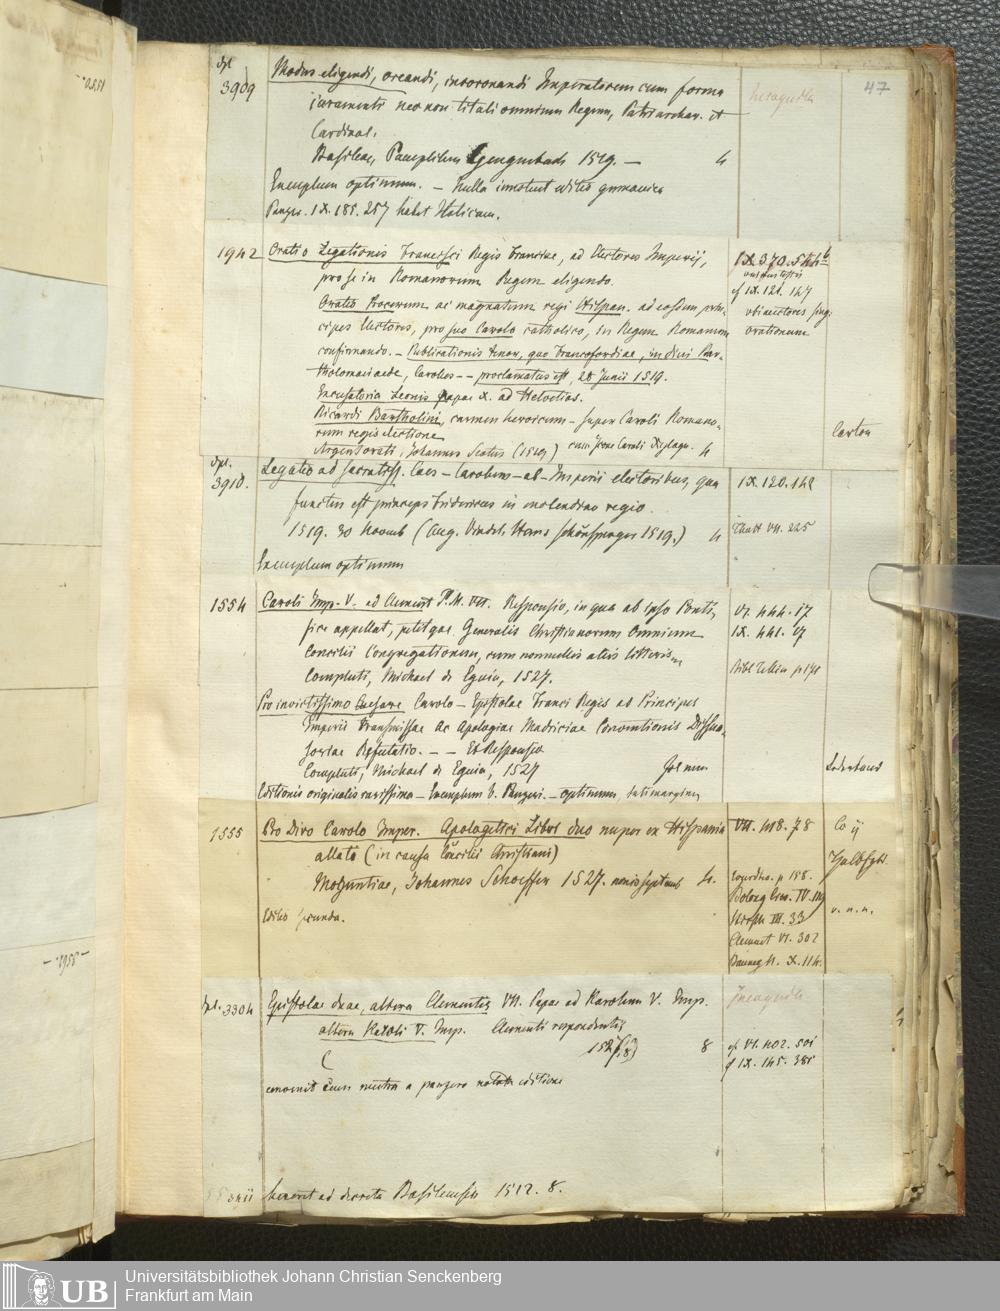 47
dpl
3909
Modus eligendi, creandi, incoronandi Imperatorem cum forma
juramenti nec non tituli omnium Regum, Patriarchar. et
Cardinal.
Basileae, Pamphilus Gengenbach 1519. — 4
Exemplum optimum. — Nulla innotuit editio germanica
Panzer. IX. 185. 257 habet Italicam.
1942
Oratio Legationis Francisci Regis Franciae, ad Electores Imperij,
pro se in Romanorum Regem eligendo.
Oratio Procerum ac magnatum regi Hispan. ad eosdem prin-
cipes Electores, pro suo Carolo catholico, in Regem Romanum
confirmando. — Publicationis tenor, quo Francofordiae, in divi Bar-
tholomaei aede, Carolus — proclamatus est, 28 Junii 1519.
Excusatoria Leonis papae X. ad Helvetios.
Ricardi Bartholini, carmen heroicum — super Caroli Romano-
rum regis electione
Argentorati, Johannes Scotus (1519) 4
IX. 370.
cf IX. 121. 147
ubi auctores sing.
orationum
Carton
dpl.
3910.
Legatio ad sacratiss. Caes — Carolum — ab — Imperii electoribus, qua
functus est princeps Fridericus in molendino regio
1519. 30 Novemb (Aug. Vindel. Hans Schönsperger 1519.) 4
Exemplum optimum
IX. 120. 142
VII. 225
1554
Caroli Imp. V. ad Clement P. M. VII. Responsio, in qua ab ipso Ponti-
fice appellat, petitque Generalis Christianorum omnium
Concilii Congregationem, cum nonnullis aliis litteris
Compluti, Michael de Eguia, 1527.
Pro invictissimo Caesare Carolo — Epistolae Franci Regis ad Principes
Imperii transmissae Ac Apologiae Madriciae Conventionis Dissua-
soriae Refutatio. — — Et Responsio
Compluti, Michael de Eguia, 1527
Editionis originalis rarissima — Exemplum b. Panzeri. — optimum, lati marginis
VI. 444. 17
IX. 441. 17
Lederband
1555
Pro Divo Carolo Imper. Apologetici Libri duo nuper ex Hispania
allati (in causa Concilii Christiani)
Moguntiae, Johannes Schoeffer 1527. mense septemb 4.
Editio secunda.
VII. 418. 78
p 158.
IV.
III. 33
Clement VI. 302
X. 114.
Co ij
Halbfrz.
dpl. 3304
Epistolae duae, altera Clementis VII. Papae ad Karolum V. Imp.
altera Karoli V. Imp. Clementi respondentis
8
convenit cum neutra a panzero notata editione
cf. VI. 402. 501
cf IX. 145. 381
ad decreta Basileensia 1512. 8.
UB
Universitätsbibliothek Johann Christian Senckenberg
Frankfurt am Main